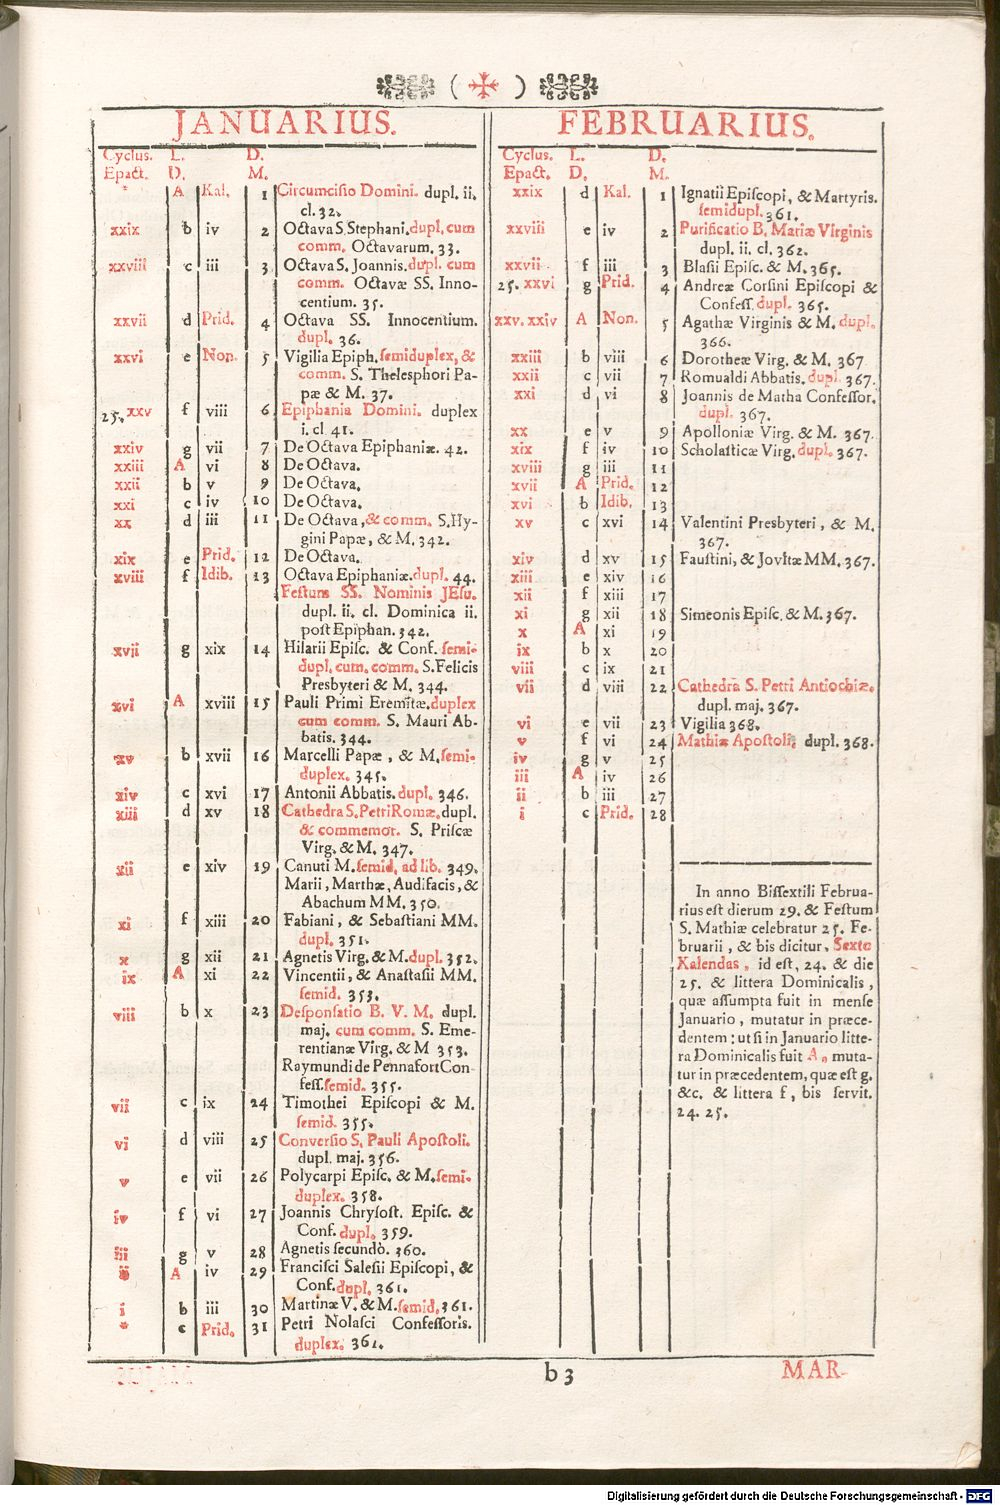 ( ✠ )
JANUARIUS.
Cyclus. L. D.
Epact. D. M.
* A Kal. 1 Circumcisio Domini. dupl. ii.
cl. 32.
xxix b iv 2 Octava S. Stephani. dupl. cum
comm. Octavarum. 33.
xxviii c iii 3 Octava S. Joannis. dupl. cum
comm. Octavæ SS. Inno-
centium. 35.
xxvii d Prid. 4 Octava SS. Innocentium.
dupl. 36.
xxvi e Non. 5 Vigilia Epiph. semiduplex, &
comm. S. Thelesphori Pa-
pæ & M. 37.
25. xxv f viii 6 Epiphania Domini. duplex
i. cl 41.
xxiv g vii 7 De Octava Epiphaniæ. 42.
xxiii A vi 8 De Octava.
xxii b v 9 De Octava.
xxi c iv 10 De Octava.
xx d iii 11 De Octava, & comm. S. Hy-
gini Papæ, & M. 342.
xix e Prid. 12 De Octava.
xviii f Idib. 13 Octava Epiphaniæ. dupl. 44.
Festum SS. Nominis JEsu.
dupl. ii. cl. Dominica ii.
post Epiphan. 342.
xvii g xix 14 Hilarii Episc. & Conf. semi-
dupl. cum. comm. S. Felicis
Presbyteri & M. 344.
xvi A xviii 15 Pauli Primi Eremitæ. duplex
cum comm. S. Mauri Ab-
batis. 344.
xv b xvii 16 Marcelli Papæ, & M. semi-
duplex. 345.
xiv c xvi 17 Antonii Abbatis. dupl. 346.
xiii d xv 18 Cathedra S. Petri Romæ. dupl.
& commemor. S. Priscæ
Virg. & M. 347.
xii e xiv 19 Canuti M. semid. ad lib. 349.
Marii, Marthæ, Audifacis, &
Abachum MM. 350.
xi f xiii 20 Fabiani, & Sebastiani MM.
dupl. 351.
x g xii 21 Agnetis Virg. & M. dupl. 352.
ix A xi 22 Vincentii, & Anastasii MM.
semid. 353.
viii b x 23 Desponsatio B. V. M. dupl.
maj. cum comm. S. Eme-
rentianæ Virg. & M 353.
Raymundi de Pennafort Con-
fess. semid. 355.
vii c ix 24 Timothei Episcopi & M.
semid. 355.
vi d viii 25 Conversio S. Pauli Apostoli.
dupl. maj. 356.
v e vii 26 Polycarpi Episc. & M. semi-
duplex. 358.
iv f vi 27 Joannis Chrysost. Episc. &
Conf. dupl. 359.
iii g v 28 Agnetis secundò. 360.
ii A iv 29 Francisci Salesii Episcopi, &
Conf. dupl. 361.
i b iii 30 Martinæ V. & M. semid. 361.
* c Prid. 31 Petri Nolasci Confessoris.
duplex. 361.
FEBRUARIUS.
Cyclus. L. D.
Epact. D. M.
xxix d Kal. 1 Ignatii Episcopi, & Martyris.
semidupl. 361.
xxviii e iv 2 Purificatio B. Mariæ Virginis
dupl. ii. cl. 362.
xxvii f iii 3 Blasii Episc. & M. 365.
25. xxvi g Prid. 4 Andreæ Corsini Episcopi &
Confess. dupl. 365.
xxv. xxiv A Non. 5 Agathæ Virginis & M. dupl.
366.
xxiii b viii 6 Dorotheæ Virg. & M. 367
xxii c vii 7 Romualdi Abbatis. dupl 367.
xxi d vi 8 Joannis de Matha Confessor.
dupl. 367.
xx e v 9 Apolloniæ Virg. & M. 367.
xix f iv 10 Scholasticæ Virg. dupl. 367.
xviii g iii 11
xvii A Prid. 12
xvi b Idib. 13
xv c xvi 14 Valentini Presbyteri, & M.
367.
xiv d xv 15 Faustini, & Jovitæ MM. 367.
xiii e xiv 16
xii f xiii 17
xi g xii 18 Simeonis Episc. & M. 367.
x A xi 19
ix b x 20
viii c ix 21
vii d viii 22 Cathedra S. Petri Antiochiæ.
dupl. maj. 367.
vi e vii 23 Vigilia 368.
v f vi 24 Mathiæ Apostoli. dupl. 368.
iv g v 25
iii A iv 26
ii b iii 27
i c Prid. 28
In anno Bissextili Februa-
rius est dierum 29. & Festum
S. Mathiæ celebratur 25. Fe-
bruarii, & bis dicitur, Sexto
Kalendas, id est, 24. & die
25. & littera Dominicalis,
quæ assumpta fuit in mense
Januario, mutatur in præce-
dentem: ut si in Januario litte-
ra Dominicalis fuit A, muta-
tur in præcedentem, quæ est g.
&c. & littera f, bis servit.
24. 25.
b 3
MAR-
Digitalisierung gefördert durch die Deutsche Forschungsgemeinschaft - DFG